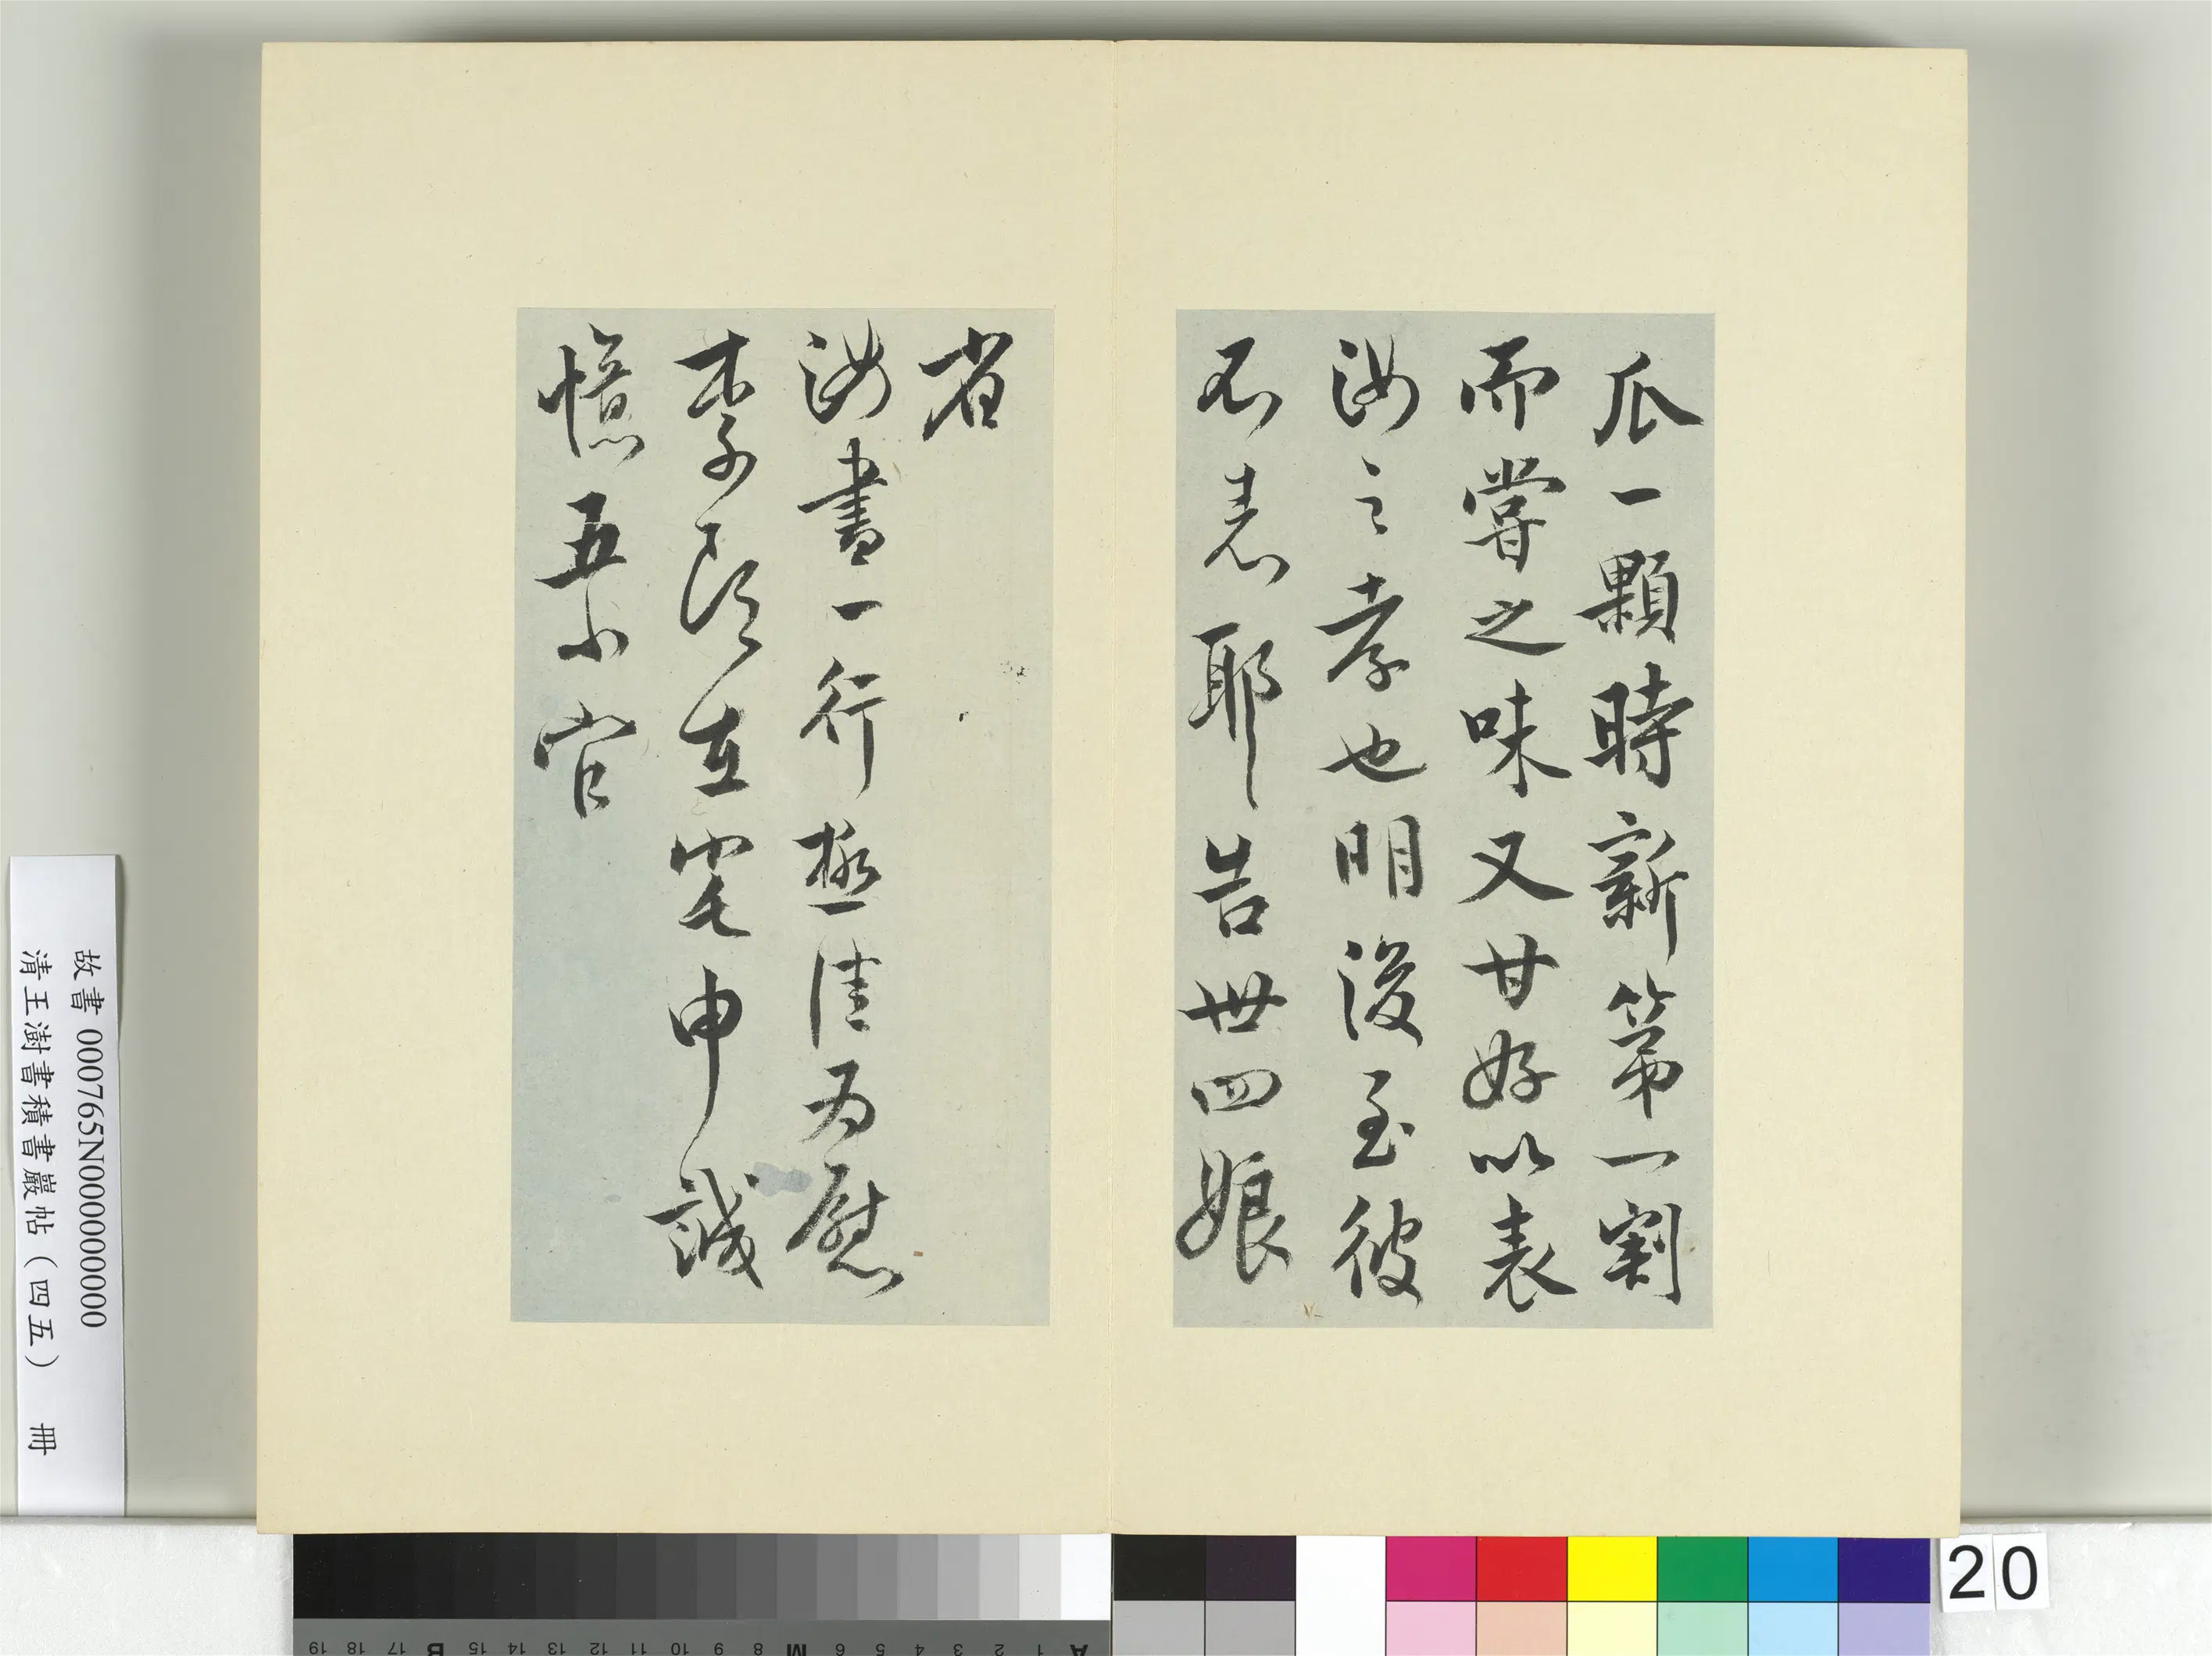 瓜一顆時新第一割
而嘗之味又甘好以表
汝之孝也明後至彼
不悉耶告世四娘
省
汝書一行極佳為慰
李在宅申誠
憶五小官
故書 000765N000000000
清王澍書積書巖帖（四五） 冊
20
A 1 2 3 4 5 6 M 8 9 10 11 12 13 14 15 B 17 18 19